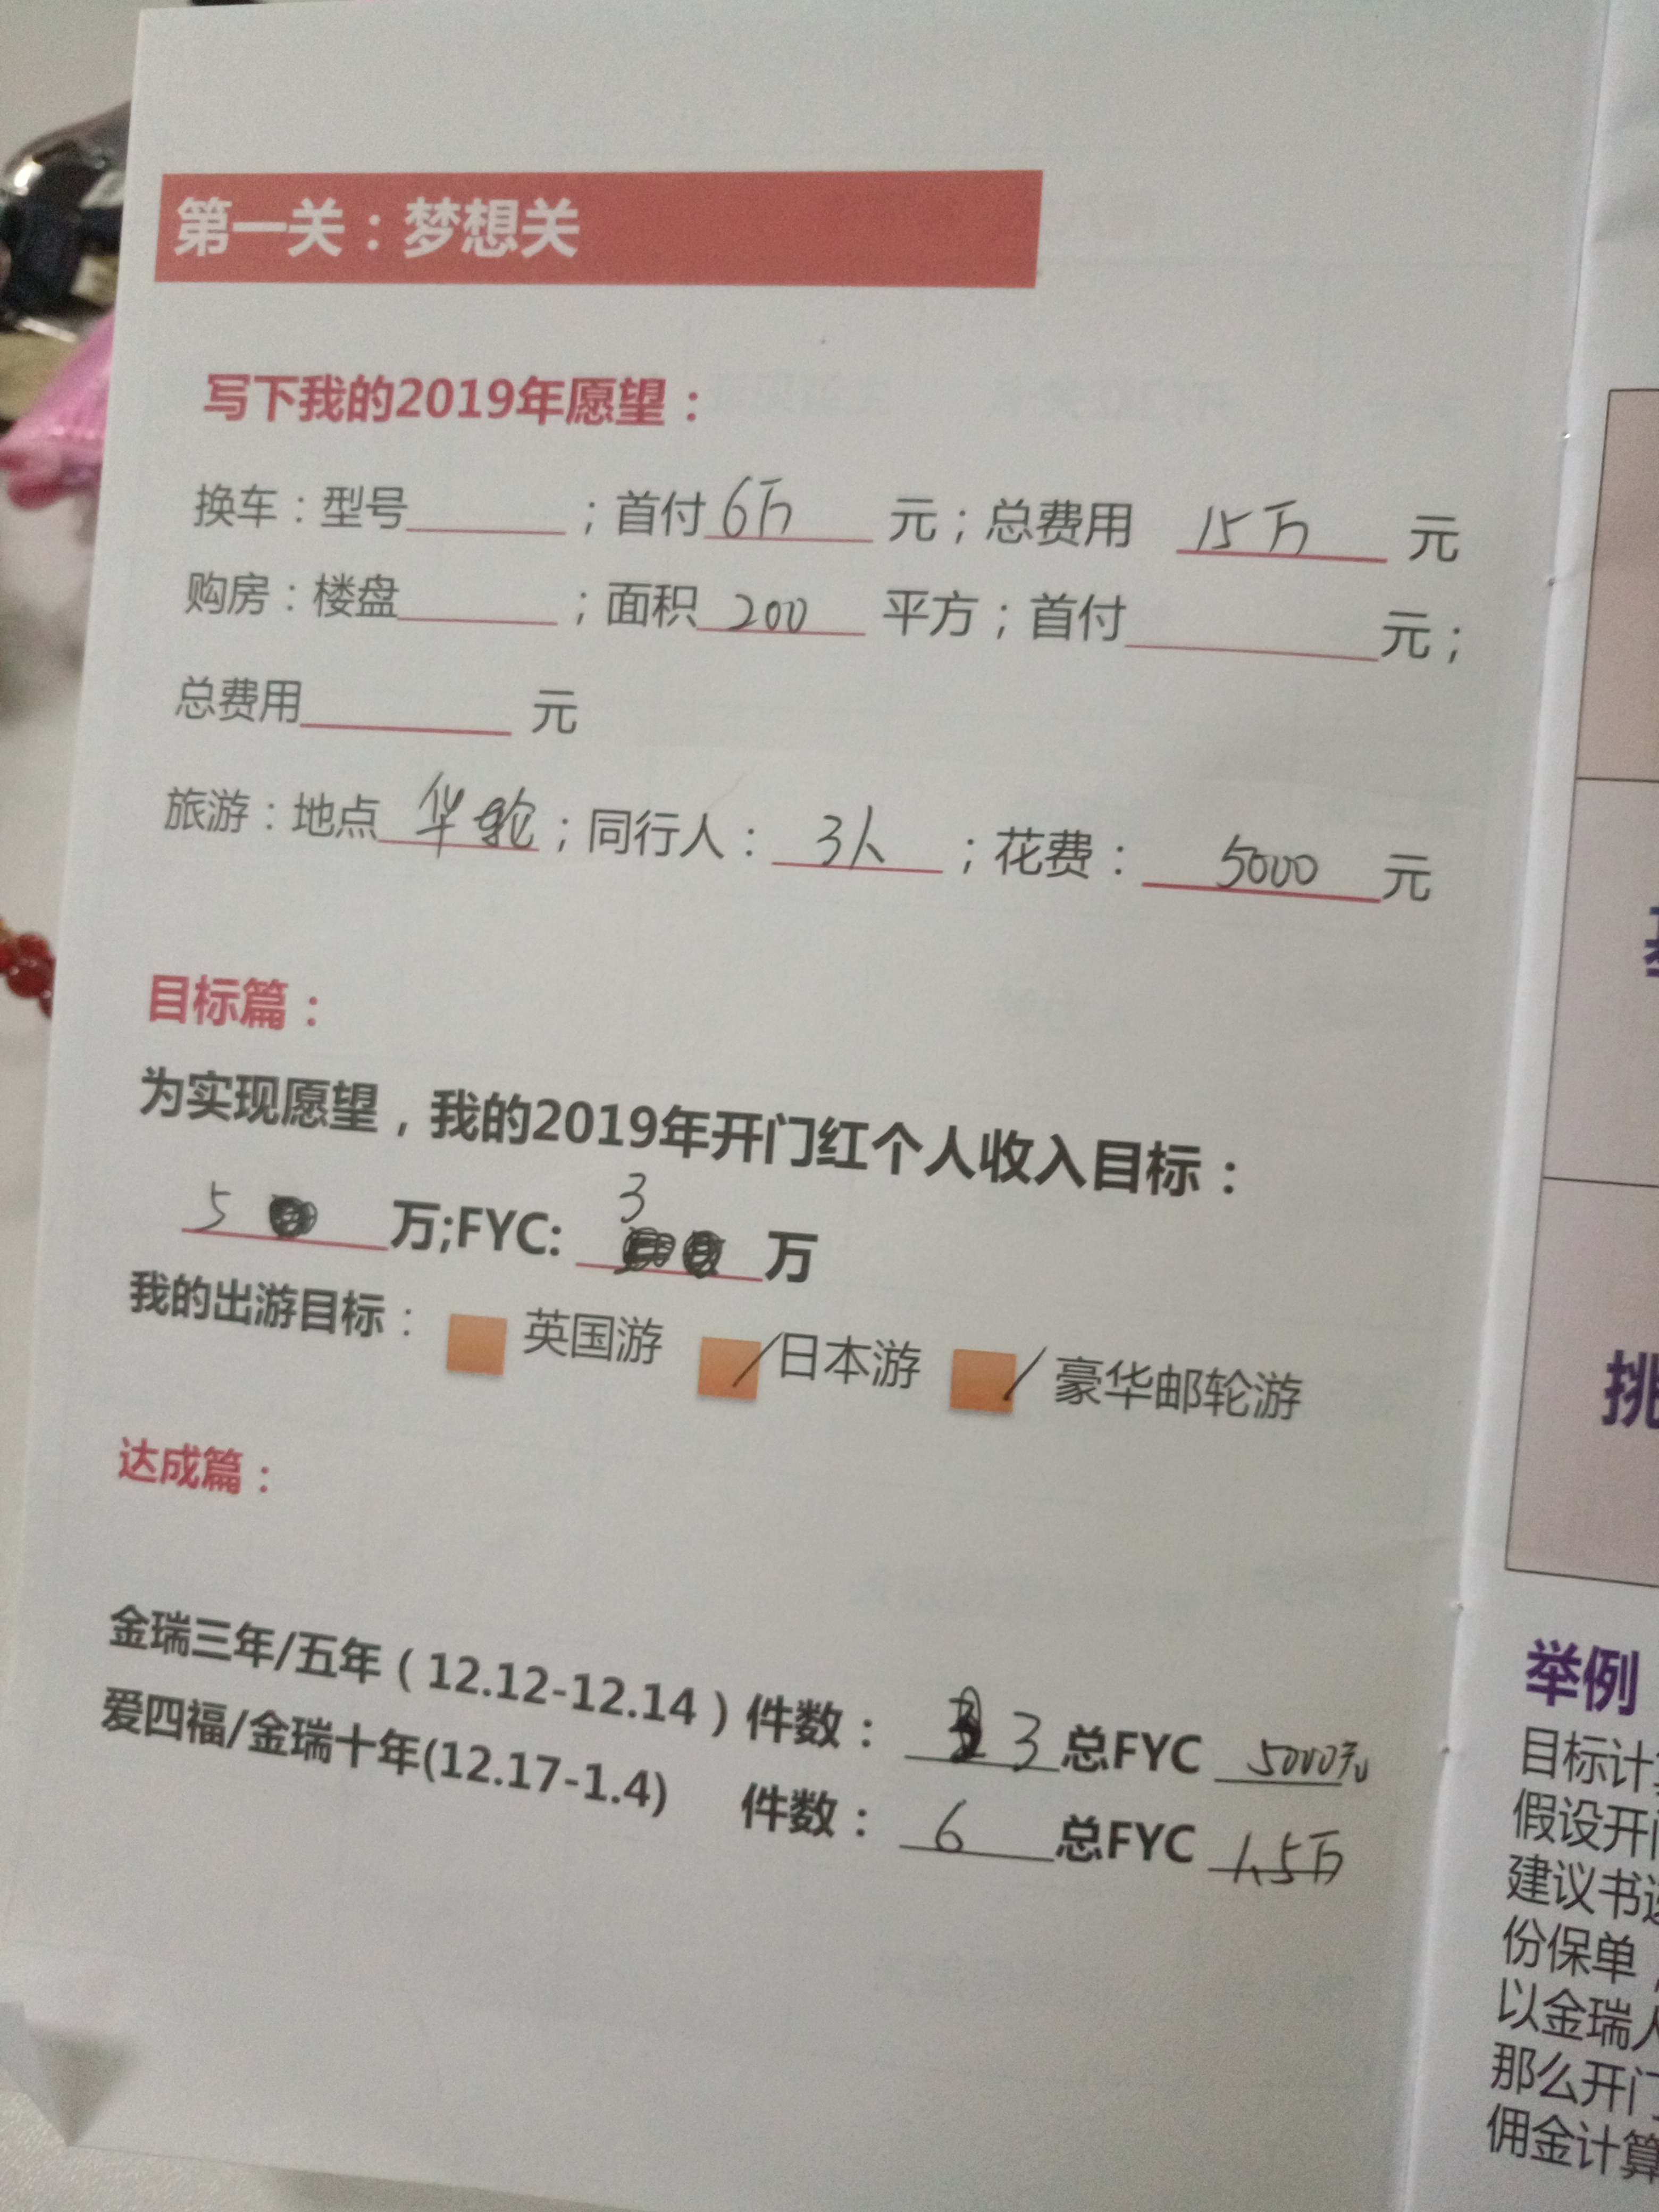 第一关：梦想关
写下我的2019年愿望：
换车：型号______；首付6万 元；总费用 15万 元
购房：楼盘______；面积 200 平方；首付______元；
总费用______ 元
旅游：地点 华轮；同行人： 3人 ；花费： 5000 元
目标篇：
为实现愿望，我的2019年开门红个人收入目标：
5 万;FYC: 3 万
我的出游目标： 英国游 日本游 豪华邮轮游
达成篇：
金瑞三年/五年（12.12-12.14）件数： 3 总FYC 5000元
爱四福/金瑞十年(12.17-1.4) 件数： 6 总FYC 1.5万
挑
举例
目标计
假设开
建议书
份保单
以金瑞
那么开
佣金计算